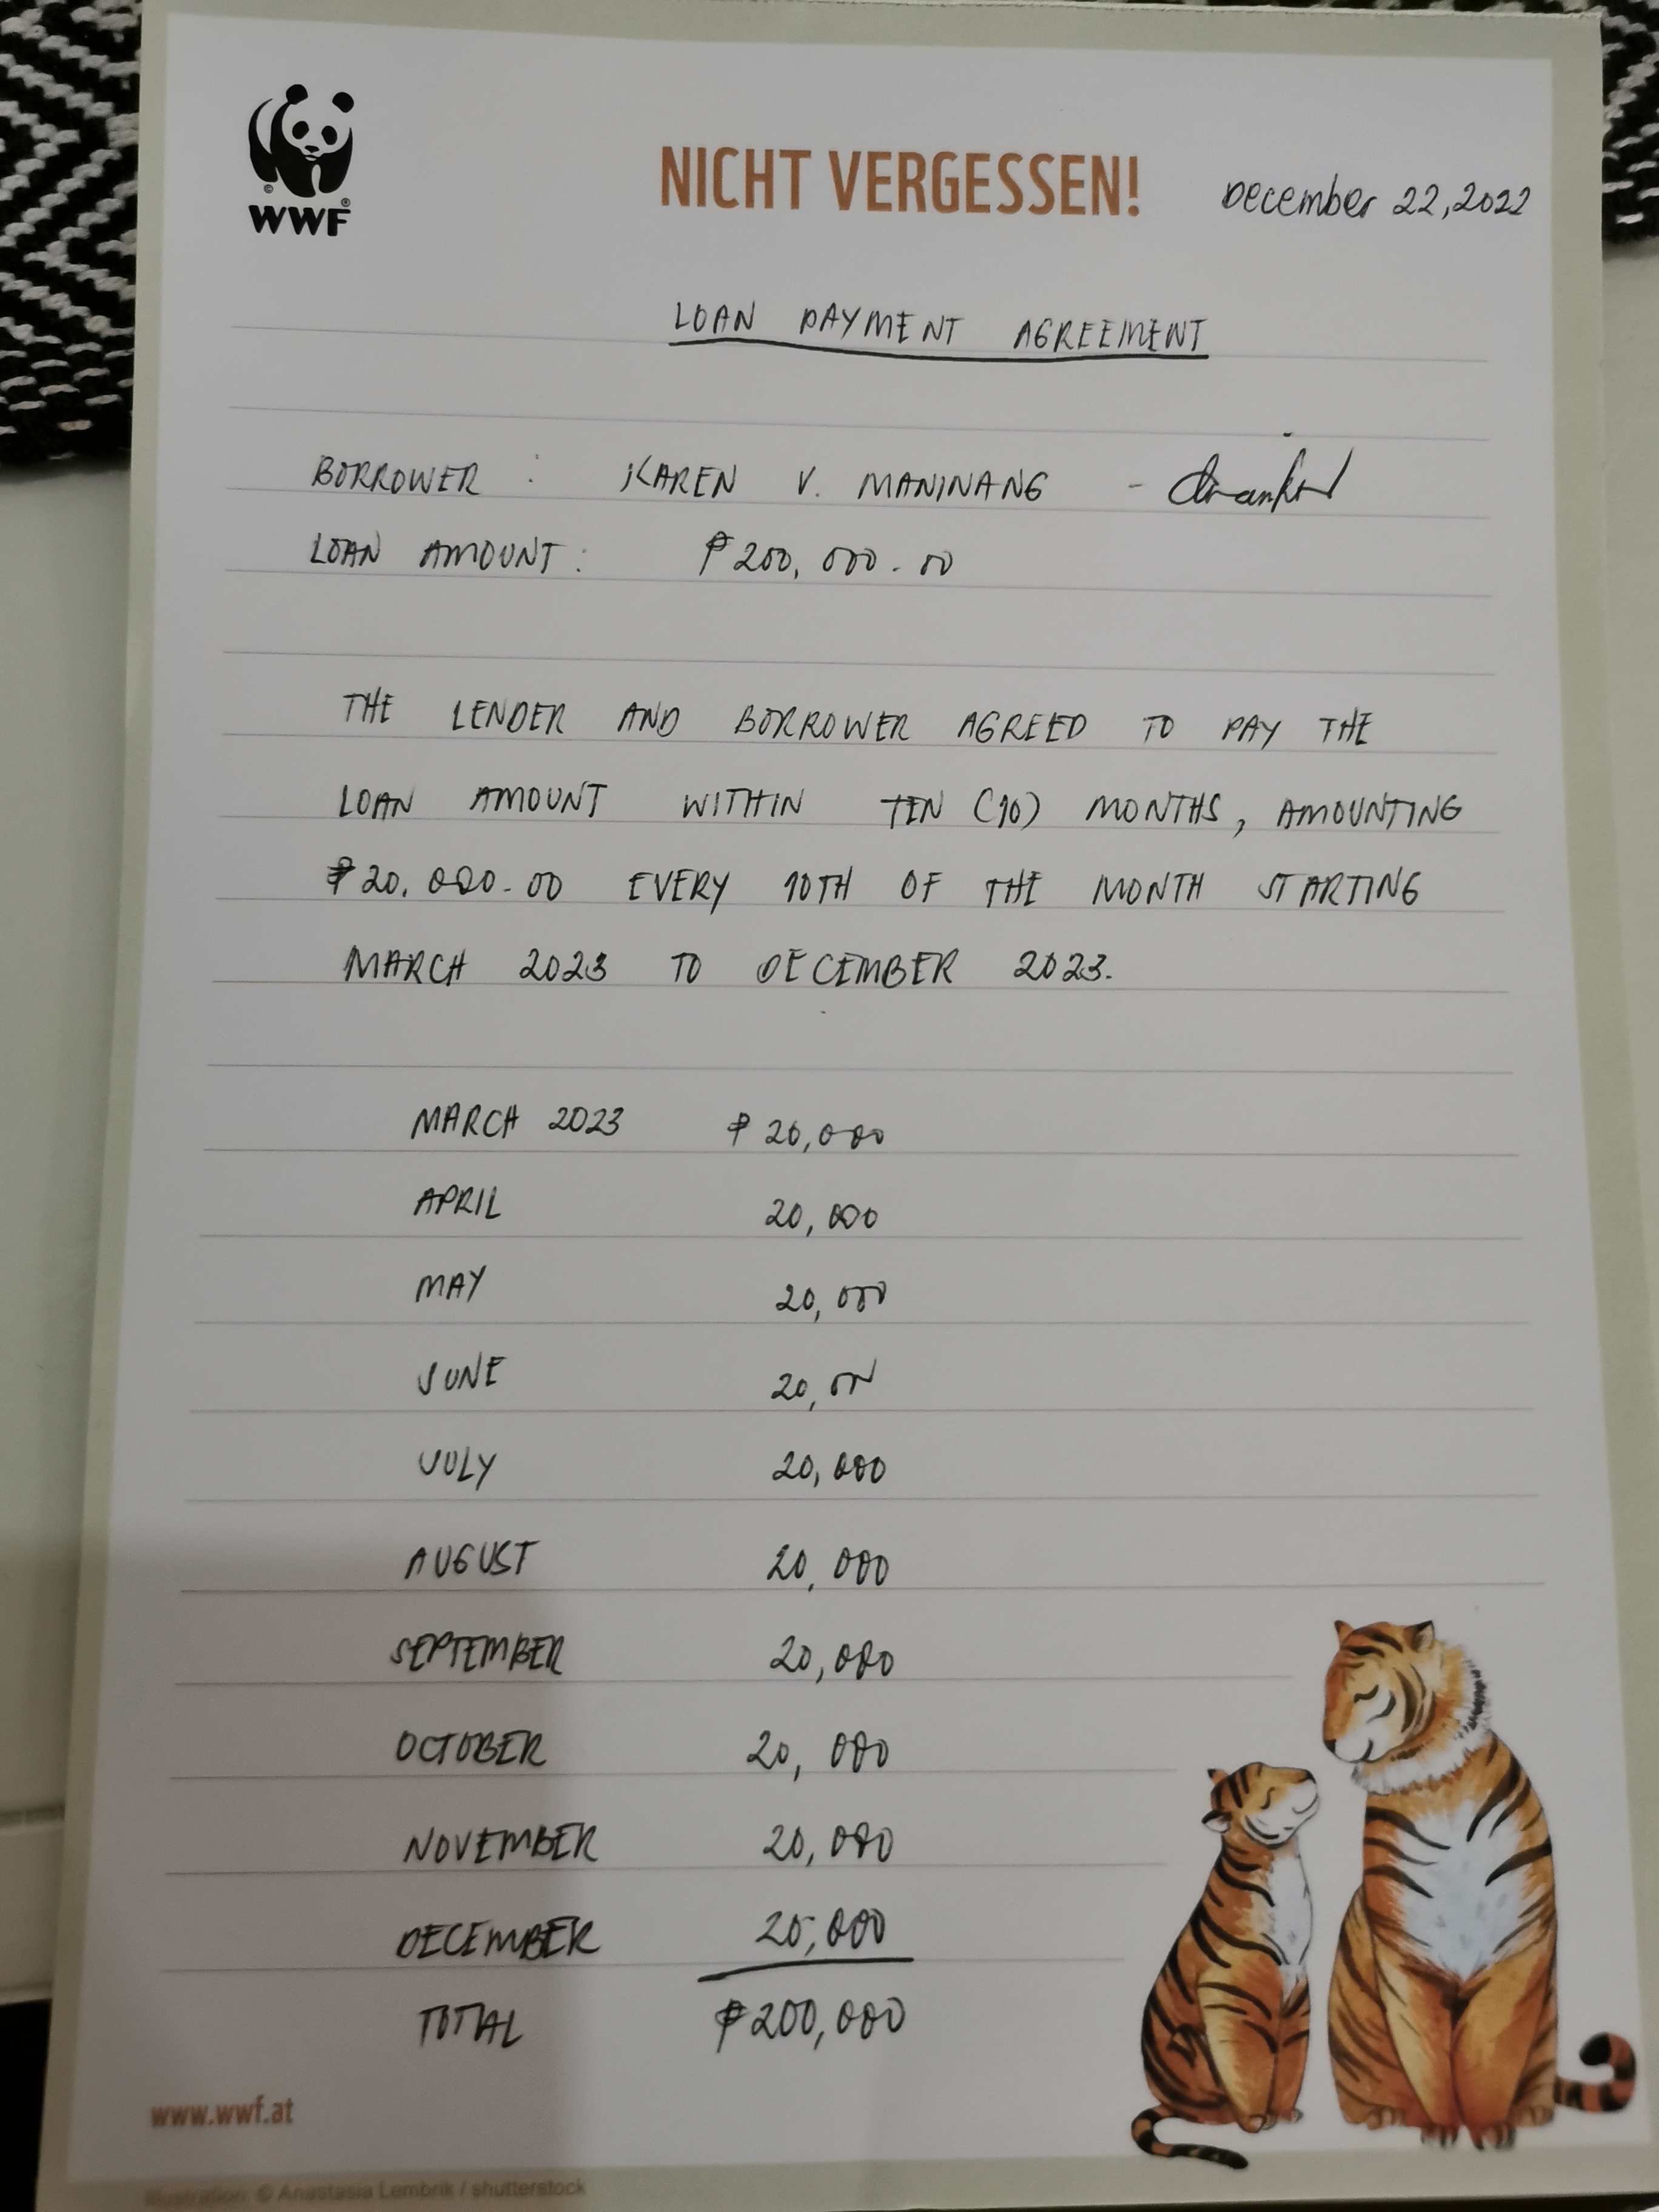 WWF
NICHT VERGESSEN!
December 22, 2022
LOAN PAYMENT AGREEMENT
BORROWER : KAREN V. MANINANG -
LOAN AMOUNT : ₱200,000.00
THE LENDER AND BORROWER AGREED TO PAY THE
LOAN AMOUNT WITHIN TEN (10) MONTHS, AMOUNTING
₱20,000.00 EVERY 10TH OF THE MONTH STARTING
MARCH 2023 TO DECEMBER 2023.
MARCH 2023 ₱20,000
APRIL 20,000
MAY 20,000
JUNE 20,000
JULY 20,000
AUGUST 20,000
SEPTEMBER 20,000
OCTOBER 20,000
NOVEMBER 20,000
DECEMBER 20,000
TOTAL ₱200,000
www.wwf.at
Illustration: © Anastasia Lembrik / shutterstock